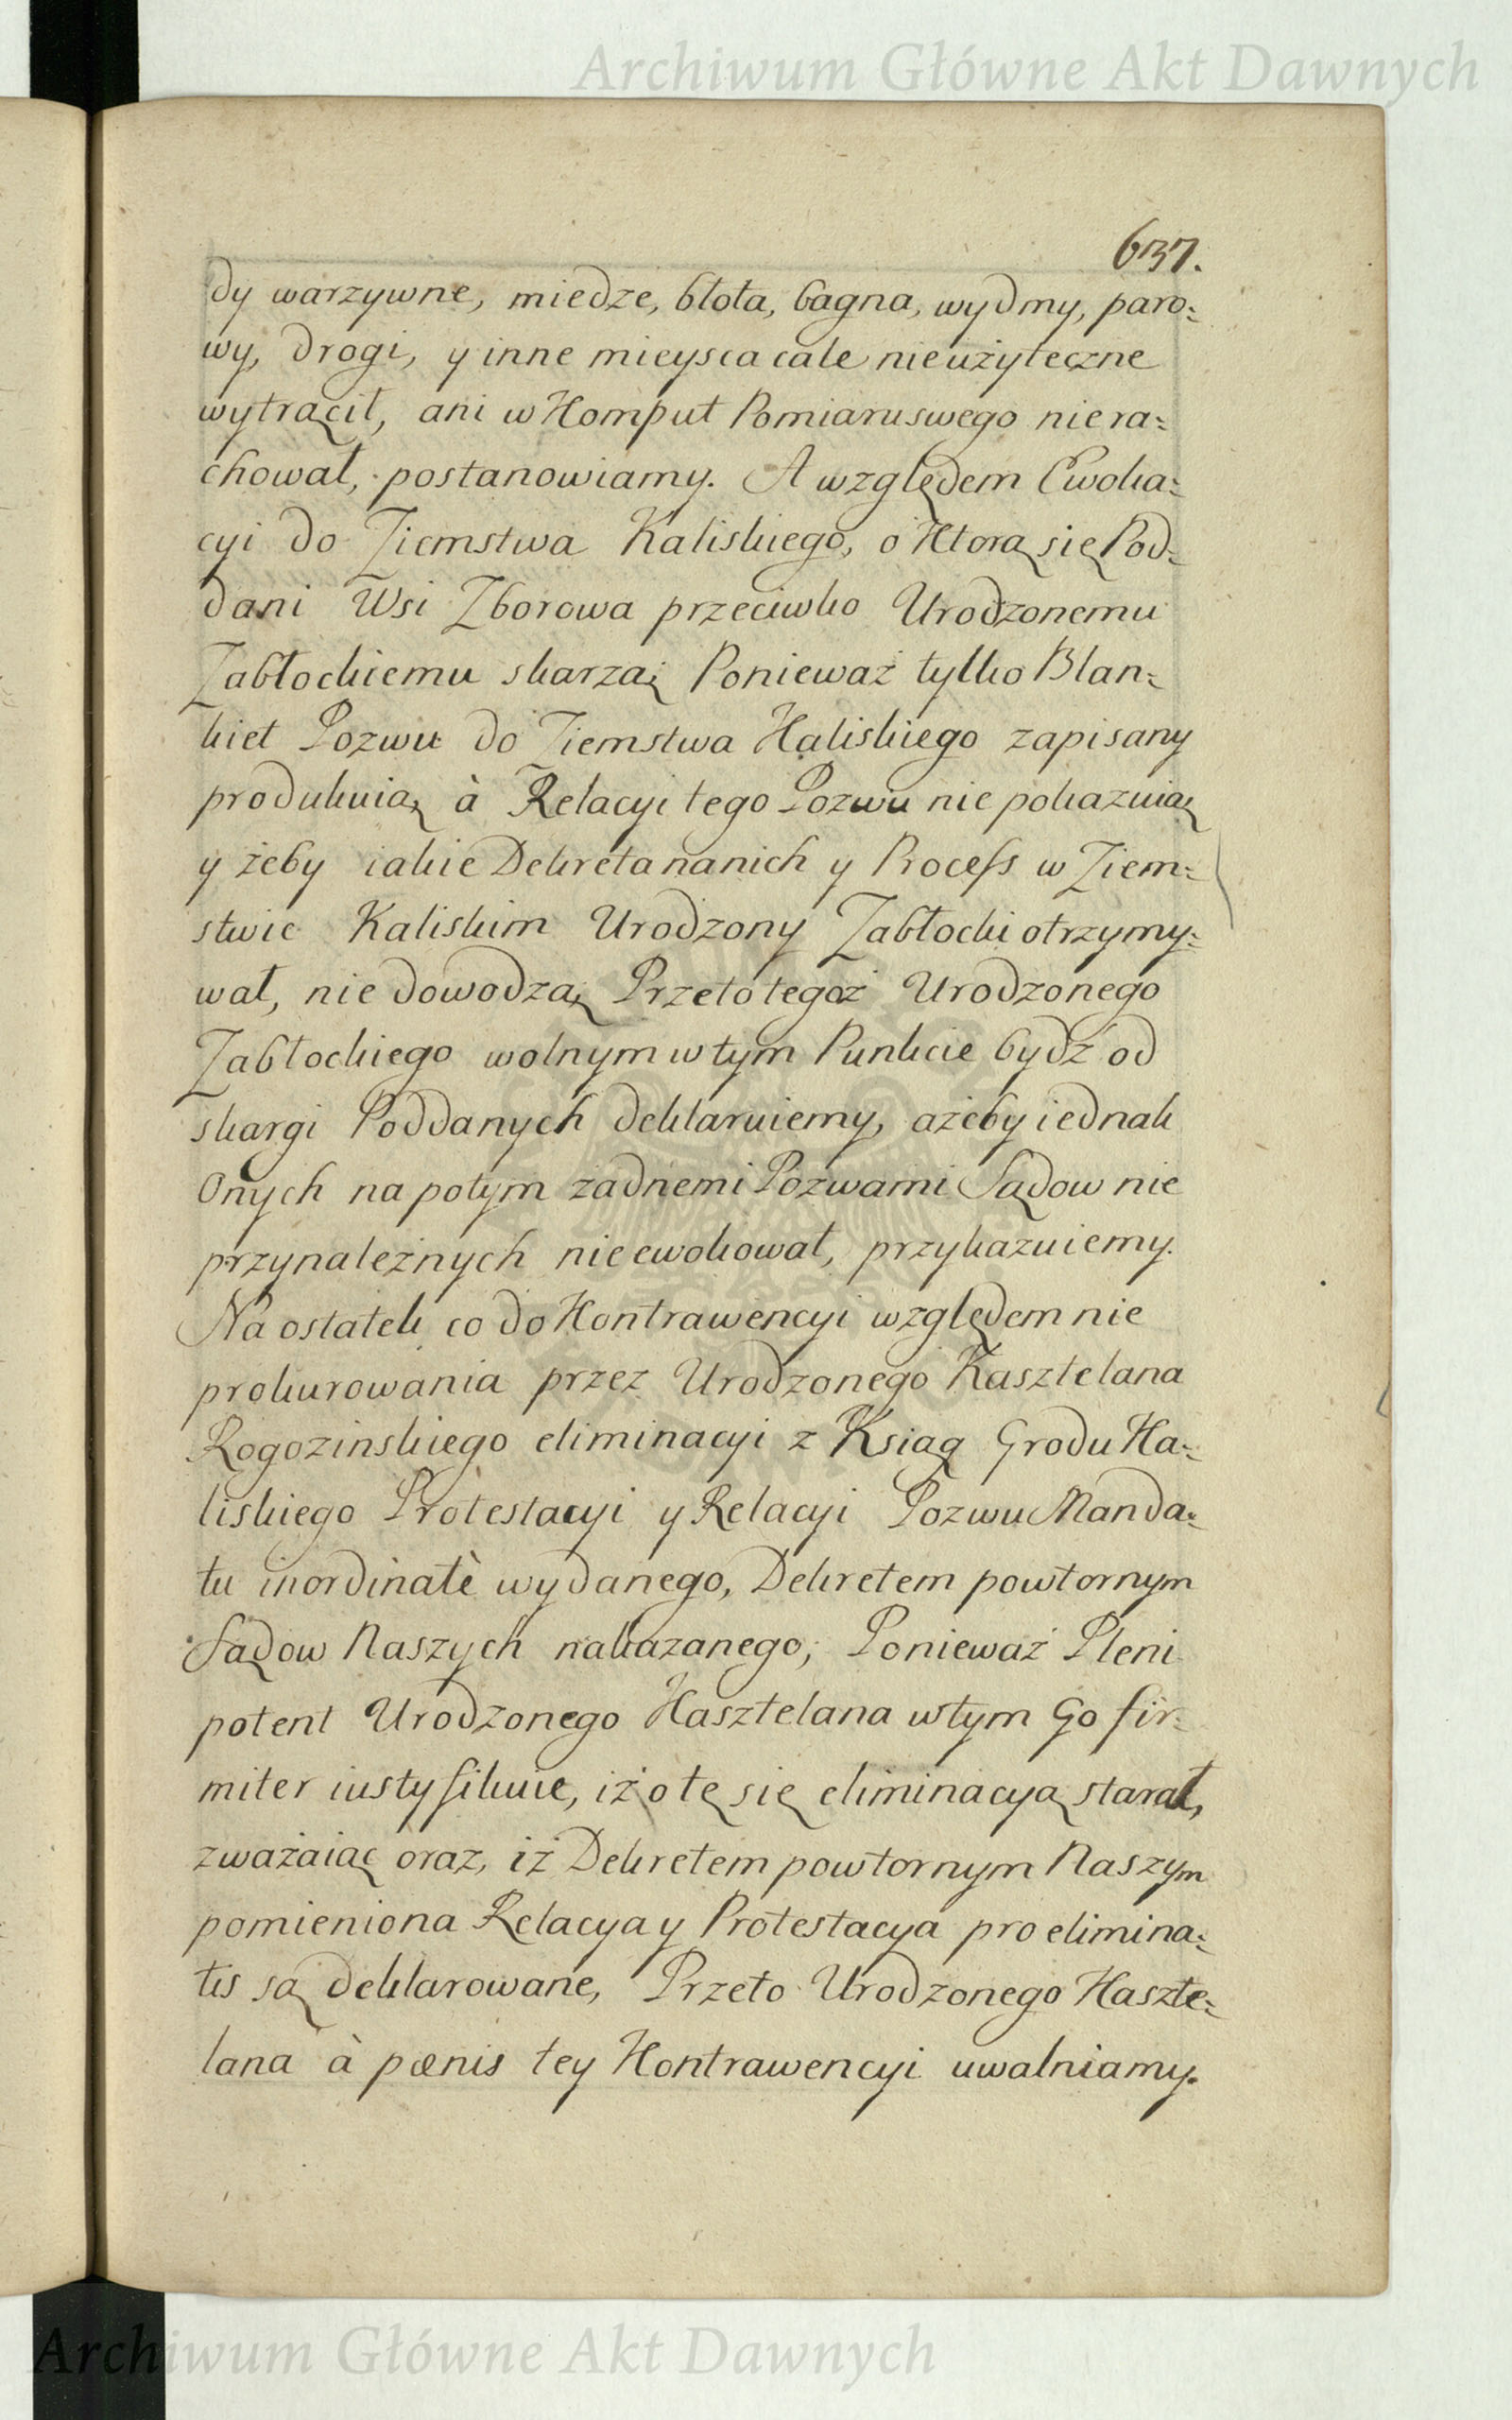 Archiwum Główne Akt Dawnych
637.
dy warzywne, miedze, błota, bagna, wydmy, paro:
wy, drogi, y inne mieysca cale nieużyteczne
wytrącił, ani w Komput Pomiaru swego niera:
chował, postanowiamy. A względem Ewoka:
cyi do Ziemstwa Kaliskiego, o Ktorą się Pod:
dani Wsi Zborowa przeciwko Urodzonemu
Zabłockiemu skarzą; Ponieważ tylko Blan:
kiet Pozwu do Ziemstwa Kaliskiego zapisany
produkuią à Relacyi tego Pozwu nie pokazuią
y żeby iakie Dekreta na nich y Process w Ziem:
stwie Kaliskim Urodzony Zabłocki otrzymy:
wał, nie dowodzą; Przeto tegoż Urodzonego
Zabłockiego wolnym w tym Punkcie bydź od
skargi Poddanych deklaruiemy, ażeby iednak
Onych na potym żadnemi Pozwami Sądow nie
przynależnych nie ewokował, przykazuiemy.
Na ostatek co do Kontrawencyi względem nie
prokurowania przez Urodzonego Kasztelana
Rogozinskiego eliminacyi z Ksiąg Grodu Ka:
liskiego Protestacyi y Relacyi Pozwu Manda:
tu inordinatè wydanego, Dekretem powtornym
Sądow Naszych nakazanego; Ponieważ Pleni
potent Urodzonego Kasztelana w tym Go fir:
miter iustyfikuie, iż o tę się eliminacyą starał,
zważaiąc oraz, iż Dekretem powtornym Naszym
pomieniona Relacya y Protestacya pro elimina:
tis są deklarowane, Przeto Urodzonego Kaszte:
lana à pœnis tey Kontrawencyi uwalniamy.
Archiwum Główne Akt Dawnych